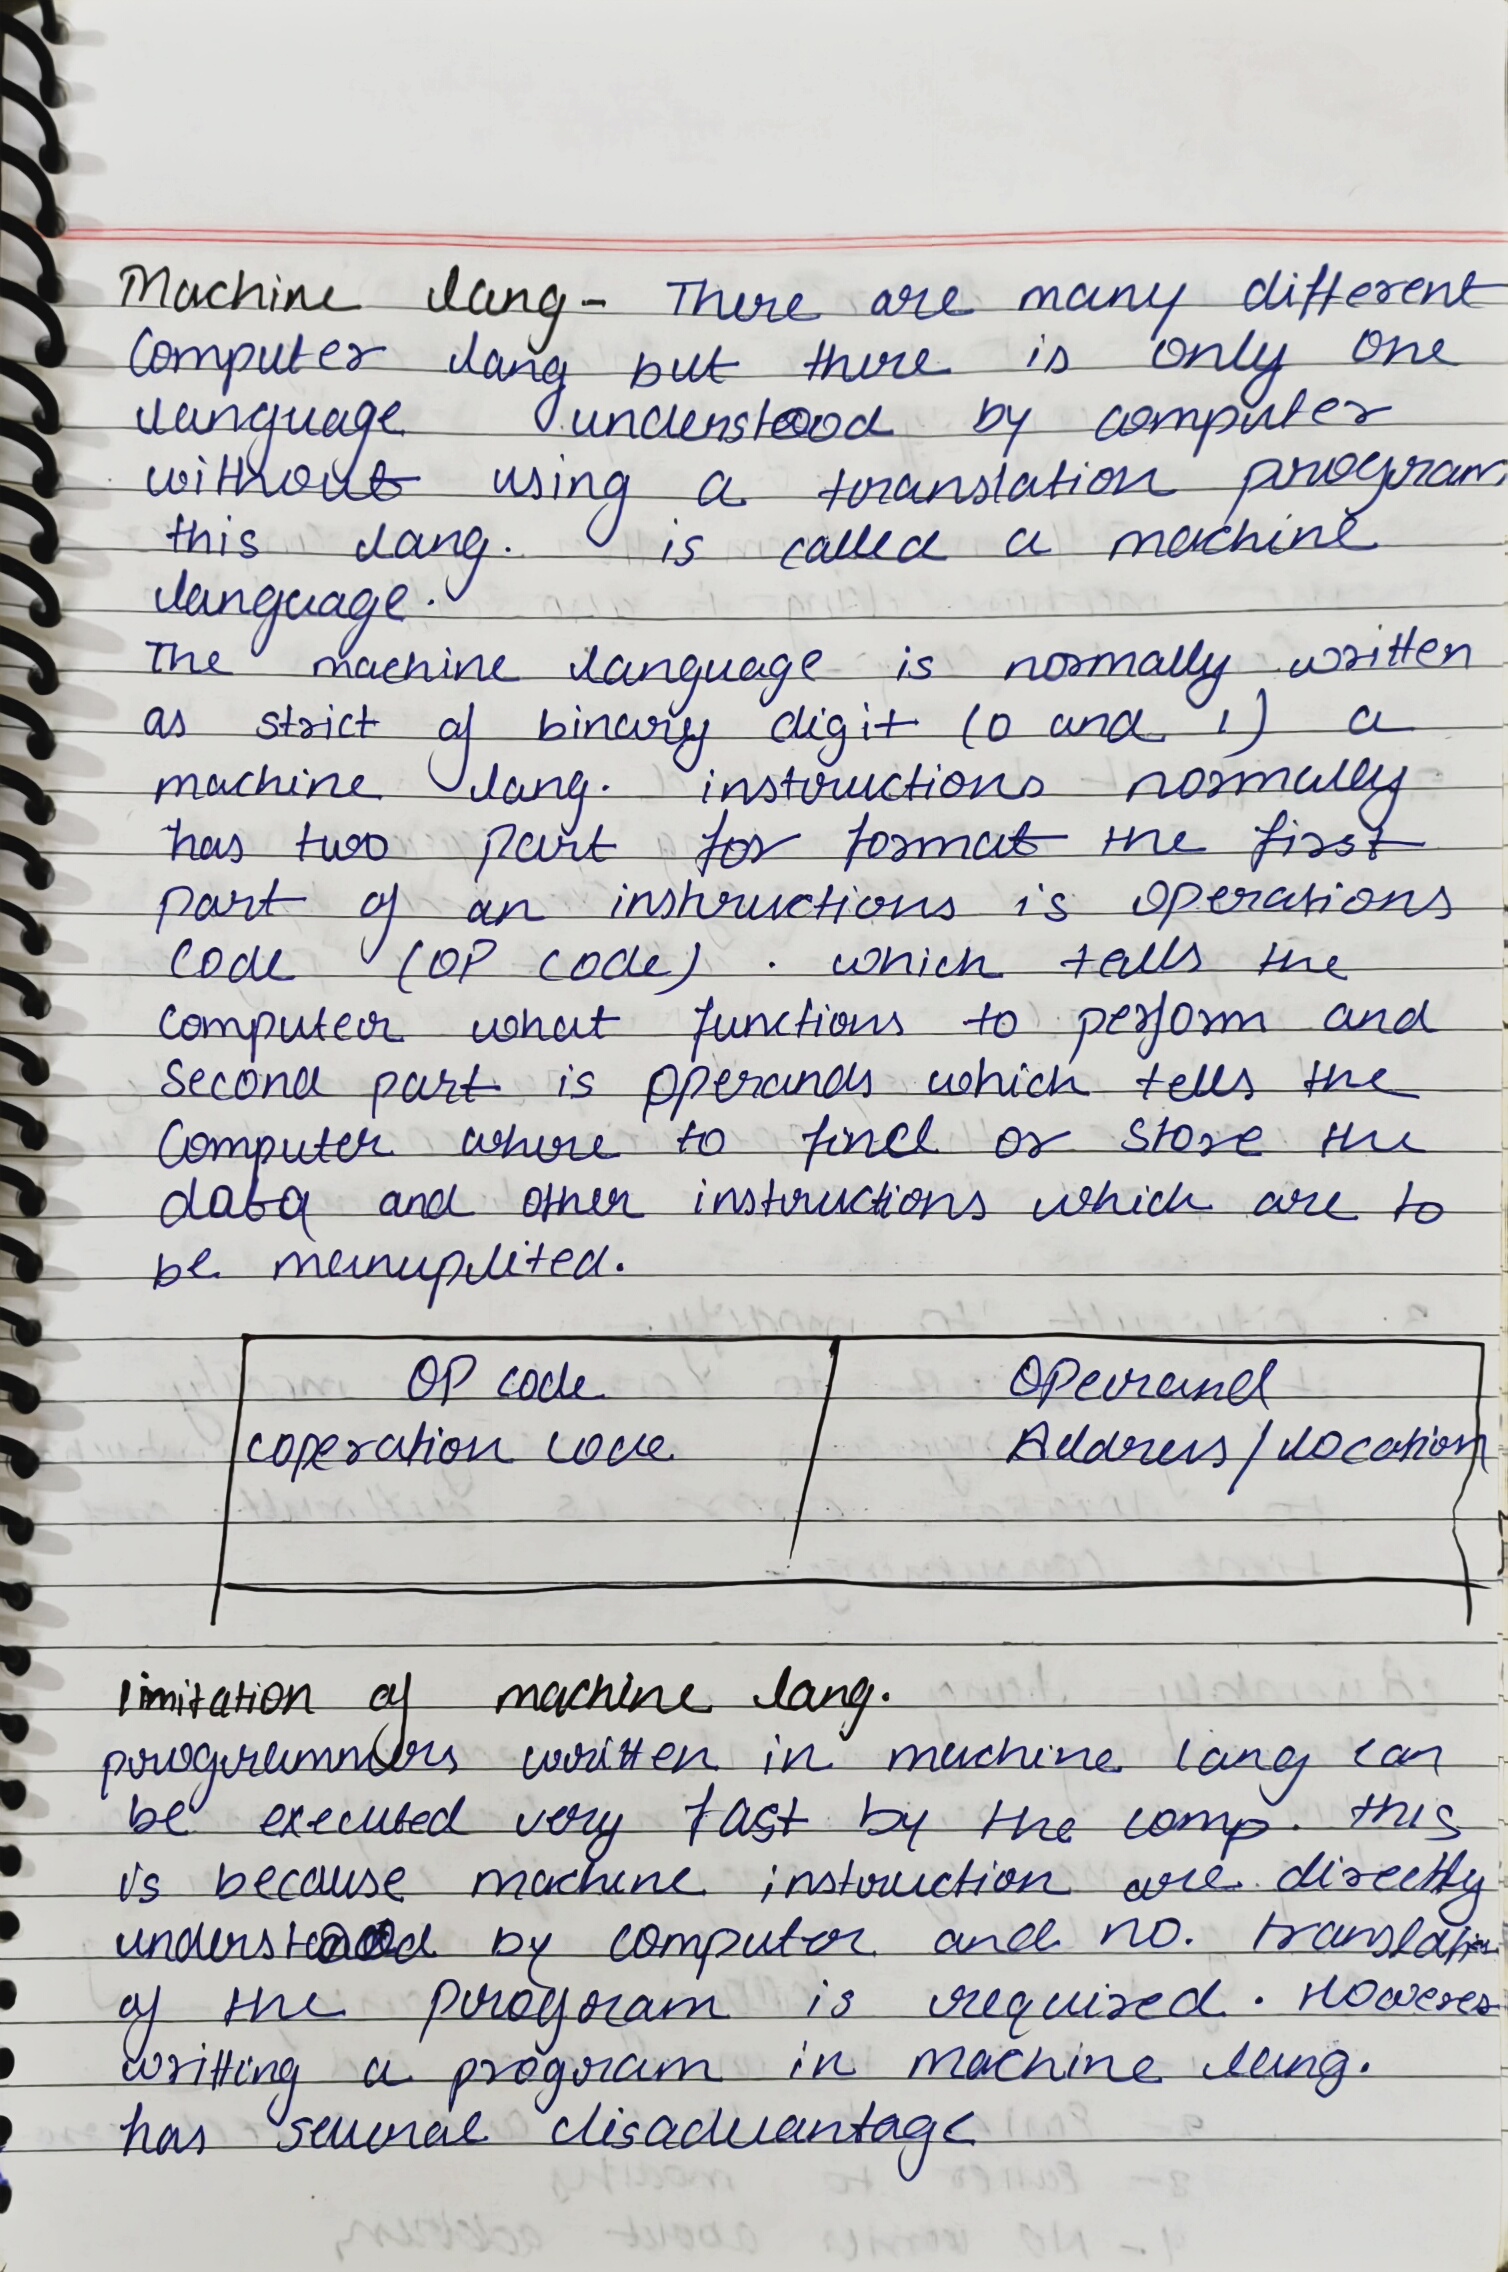 Machine lang - There are many different
Computer lang but there is only one
language understood by computer
without using a translation program
this lang. is called a machine
language.
The machine language is normally written
as strict of binary digit (0 and 1) a
machine lang. instructions normally
has two part for format the first
part of an instructions is operations
code (OP code) . which tells the
computer what functions to perform and
Second part is operands which tells the
Computer where to find or store the
data and other instructions which are to
be manuplited.
OP code
coperation code
Operand
Address / location
limitation of machine lang.
programmers written in machine lang can
be executed very fast by the comp. this
is because machine instruction are directly
understood by computor and no. translation
of the program is required. However
writting a program in machine lang.
has several disadvantage